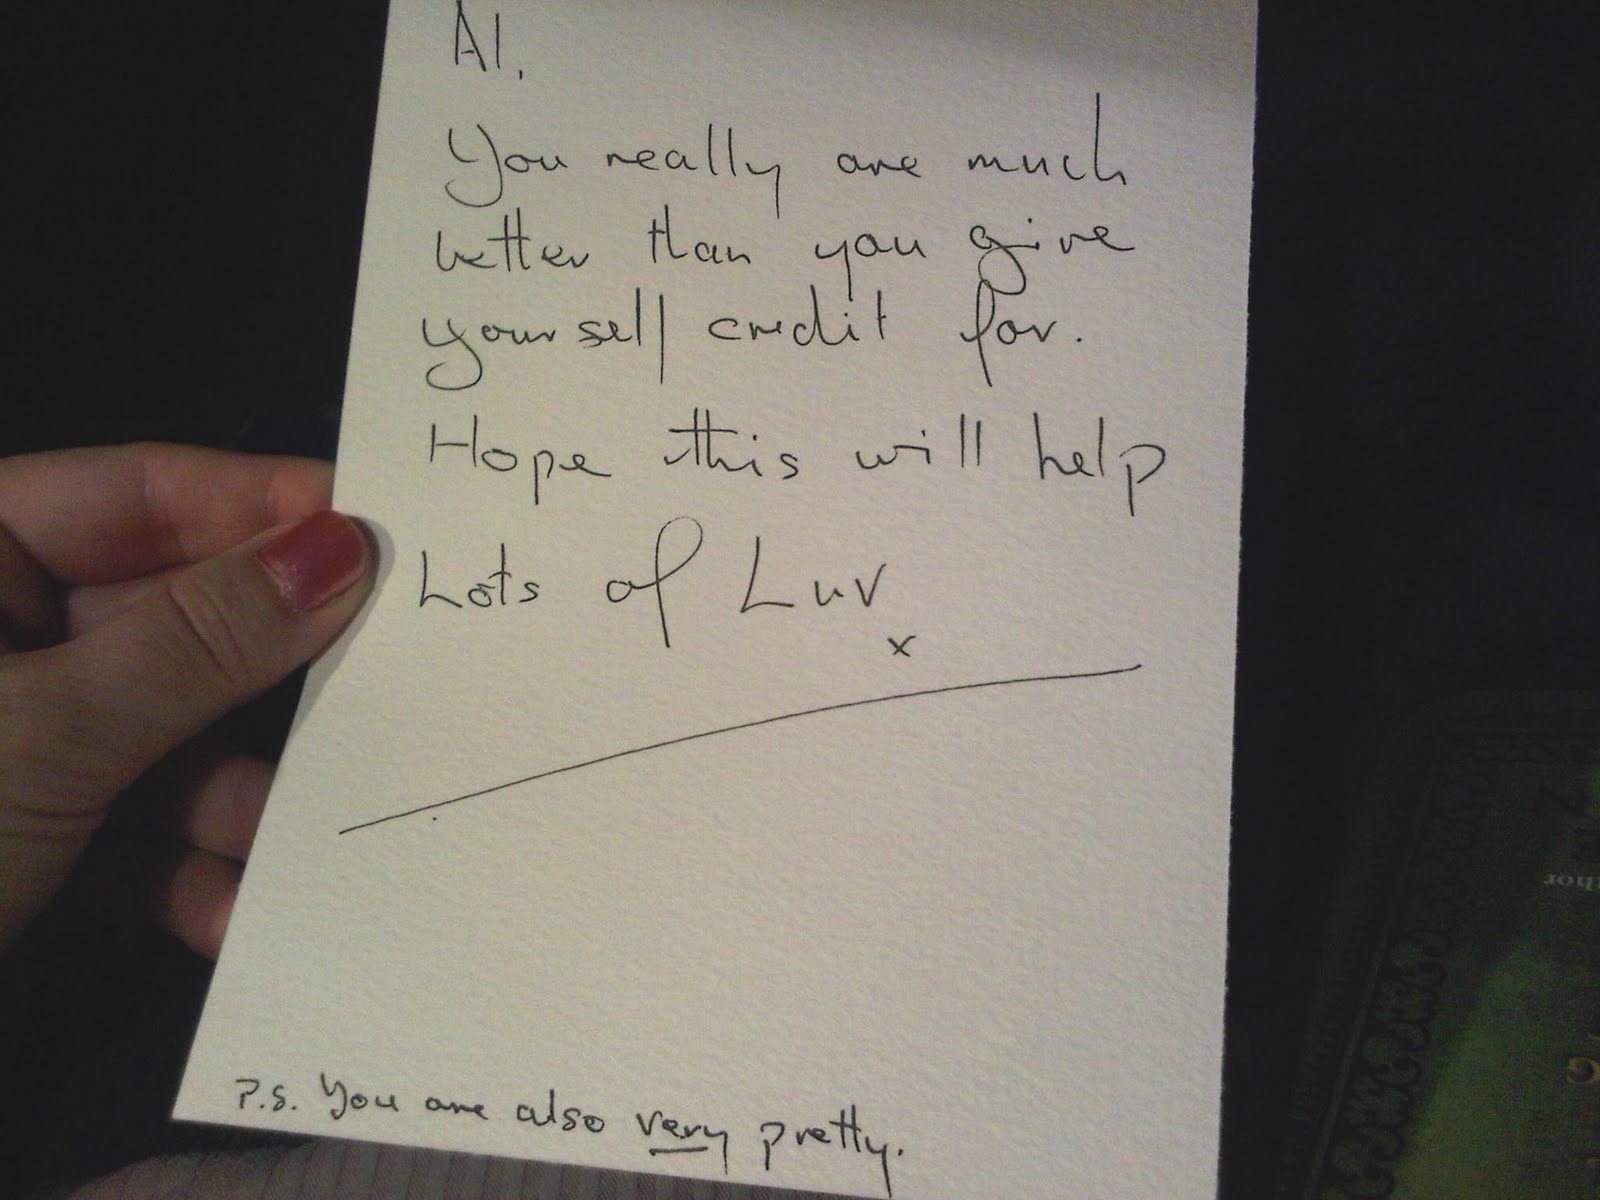 Al,
You really are much
better than you give
yourself credit for.
Hope this will help
Lots of Luv
x
P.S. You are also very pretty.